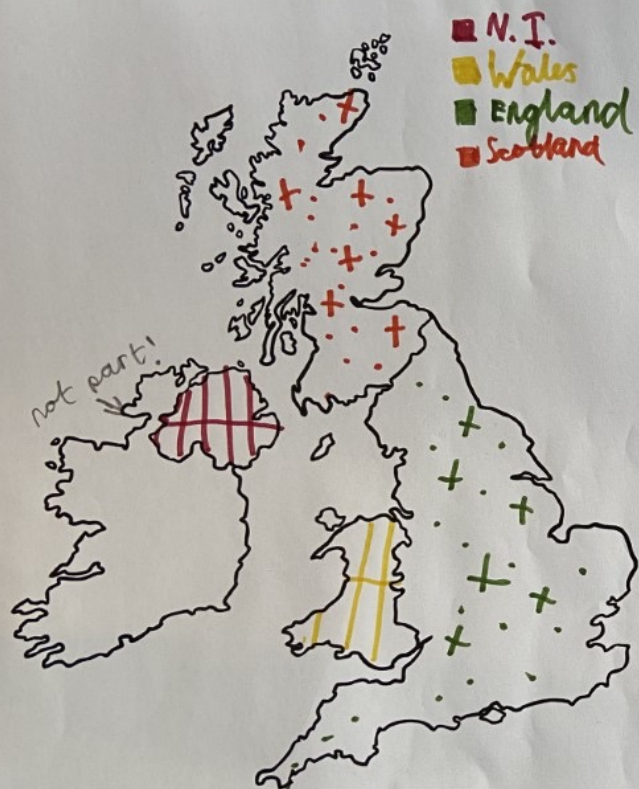 N.I.
Wales
England
Scotland
not part!